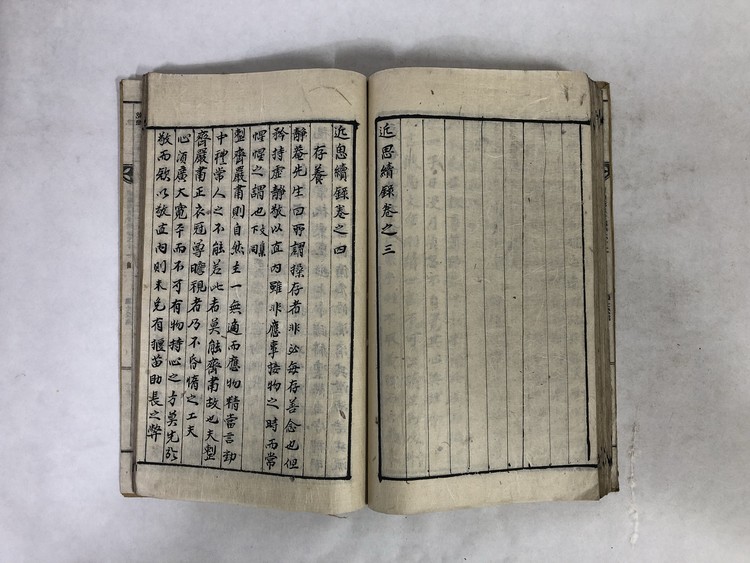 近思續錄卷之三
近思續錄卷之四
存養
靜菴先生曰所謂操存者非必每存善念也但
矜持虛靜敬以直內雖非應事接物之時而常
惺惺之謂也
整齊嚴肅則自然主一無適而應物精當言動
中禮常人之不能若此者莫能齊肅故也夫整
齊嚴肅正衣冠尊瞻視者乃不昏惰之工夫
心須廣大寬平而不可有物持心之方莫先於
敬而欲以敬直內則未免有揠苗助長之弊